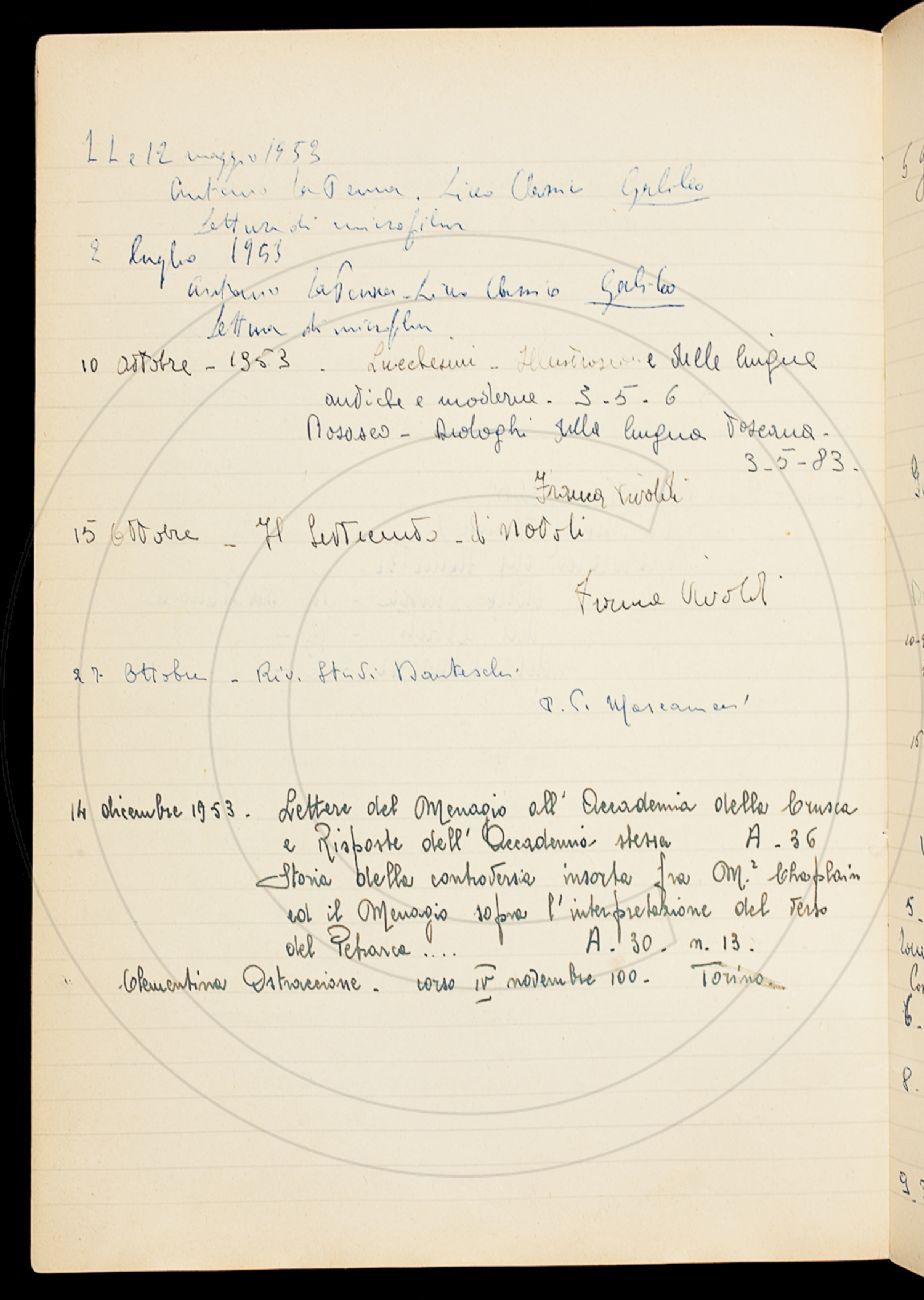 11 e 12 maggio 1953
Antonio La Penna. Liceo Classico Galileo
Lettura di microfilm
2 luglio 1953
Antonio La Penna - Liceo Classico Galileo
Lettura di microfilm
10 Ottobre - 1953 - Lucchesini - Illustrazione delle lingue
antiche e moderne - 3-5-6
Rosasco - Dialoghi della lingua Toscana -
3-5-83.
Franca Vivoldi
15 Ottobre - Il Settecento - di Natali
Franca Vivoldi
27 Ottobre - Riv. Studi Danteschi
14 dicembre 1953. Lettere del Menagio all' Accademia della Crusca
e Risposte dell' Accademia stessa A - 36
Storia della controversia insorta fra M.r Chaplain
ed il Menagio sopra l'interpretazione del verso
del Petrarca .... A. 30. n. 13.
Clementina corso IV novembre 100. Torino.
5
10-
15
5.
6.
8.
9